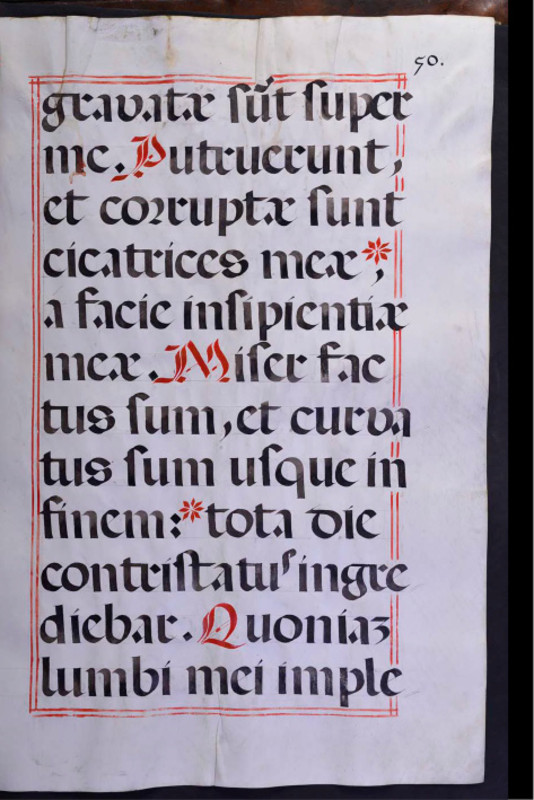 50.
gravatæ sũt super
me. Putruerunt,
et corruptæ sunt
cicatrices meæ*,
a facie insipientiæ
meæ. Miser fac
tus sum, et curva
tus sum usque in
finem:* tota die
contristatus ingre
diebar. Quoniaʒ
lumbi mei imple